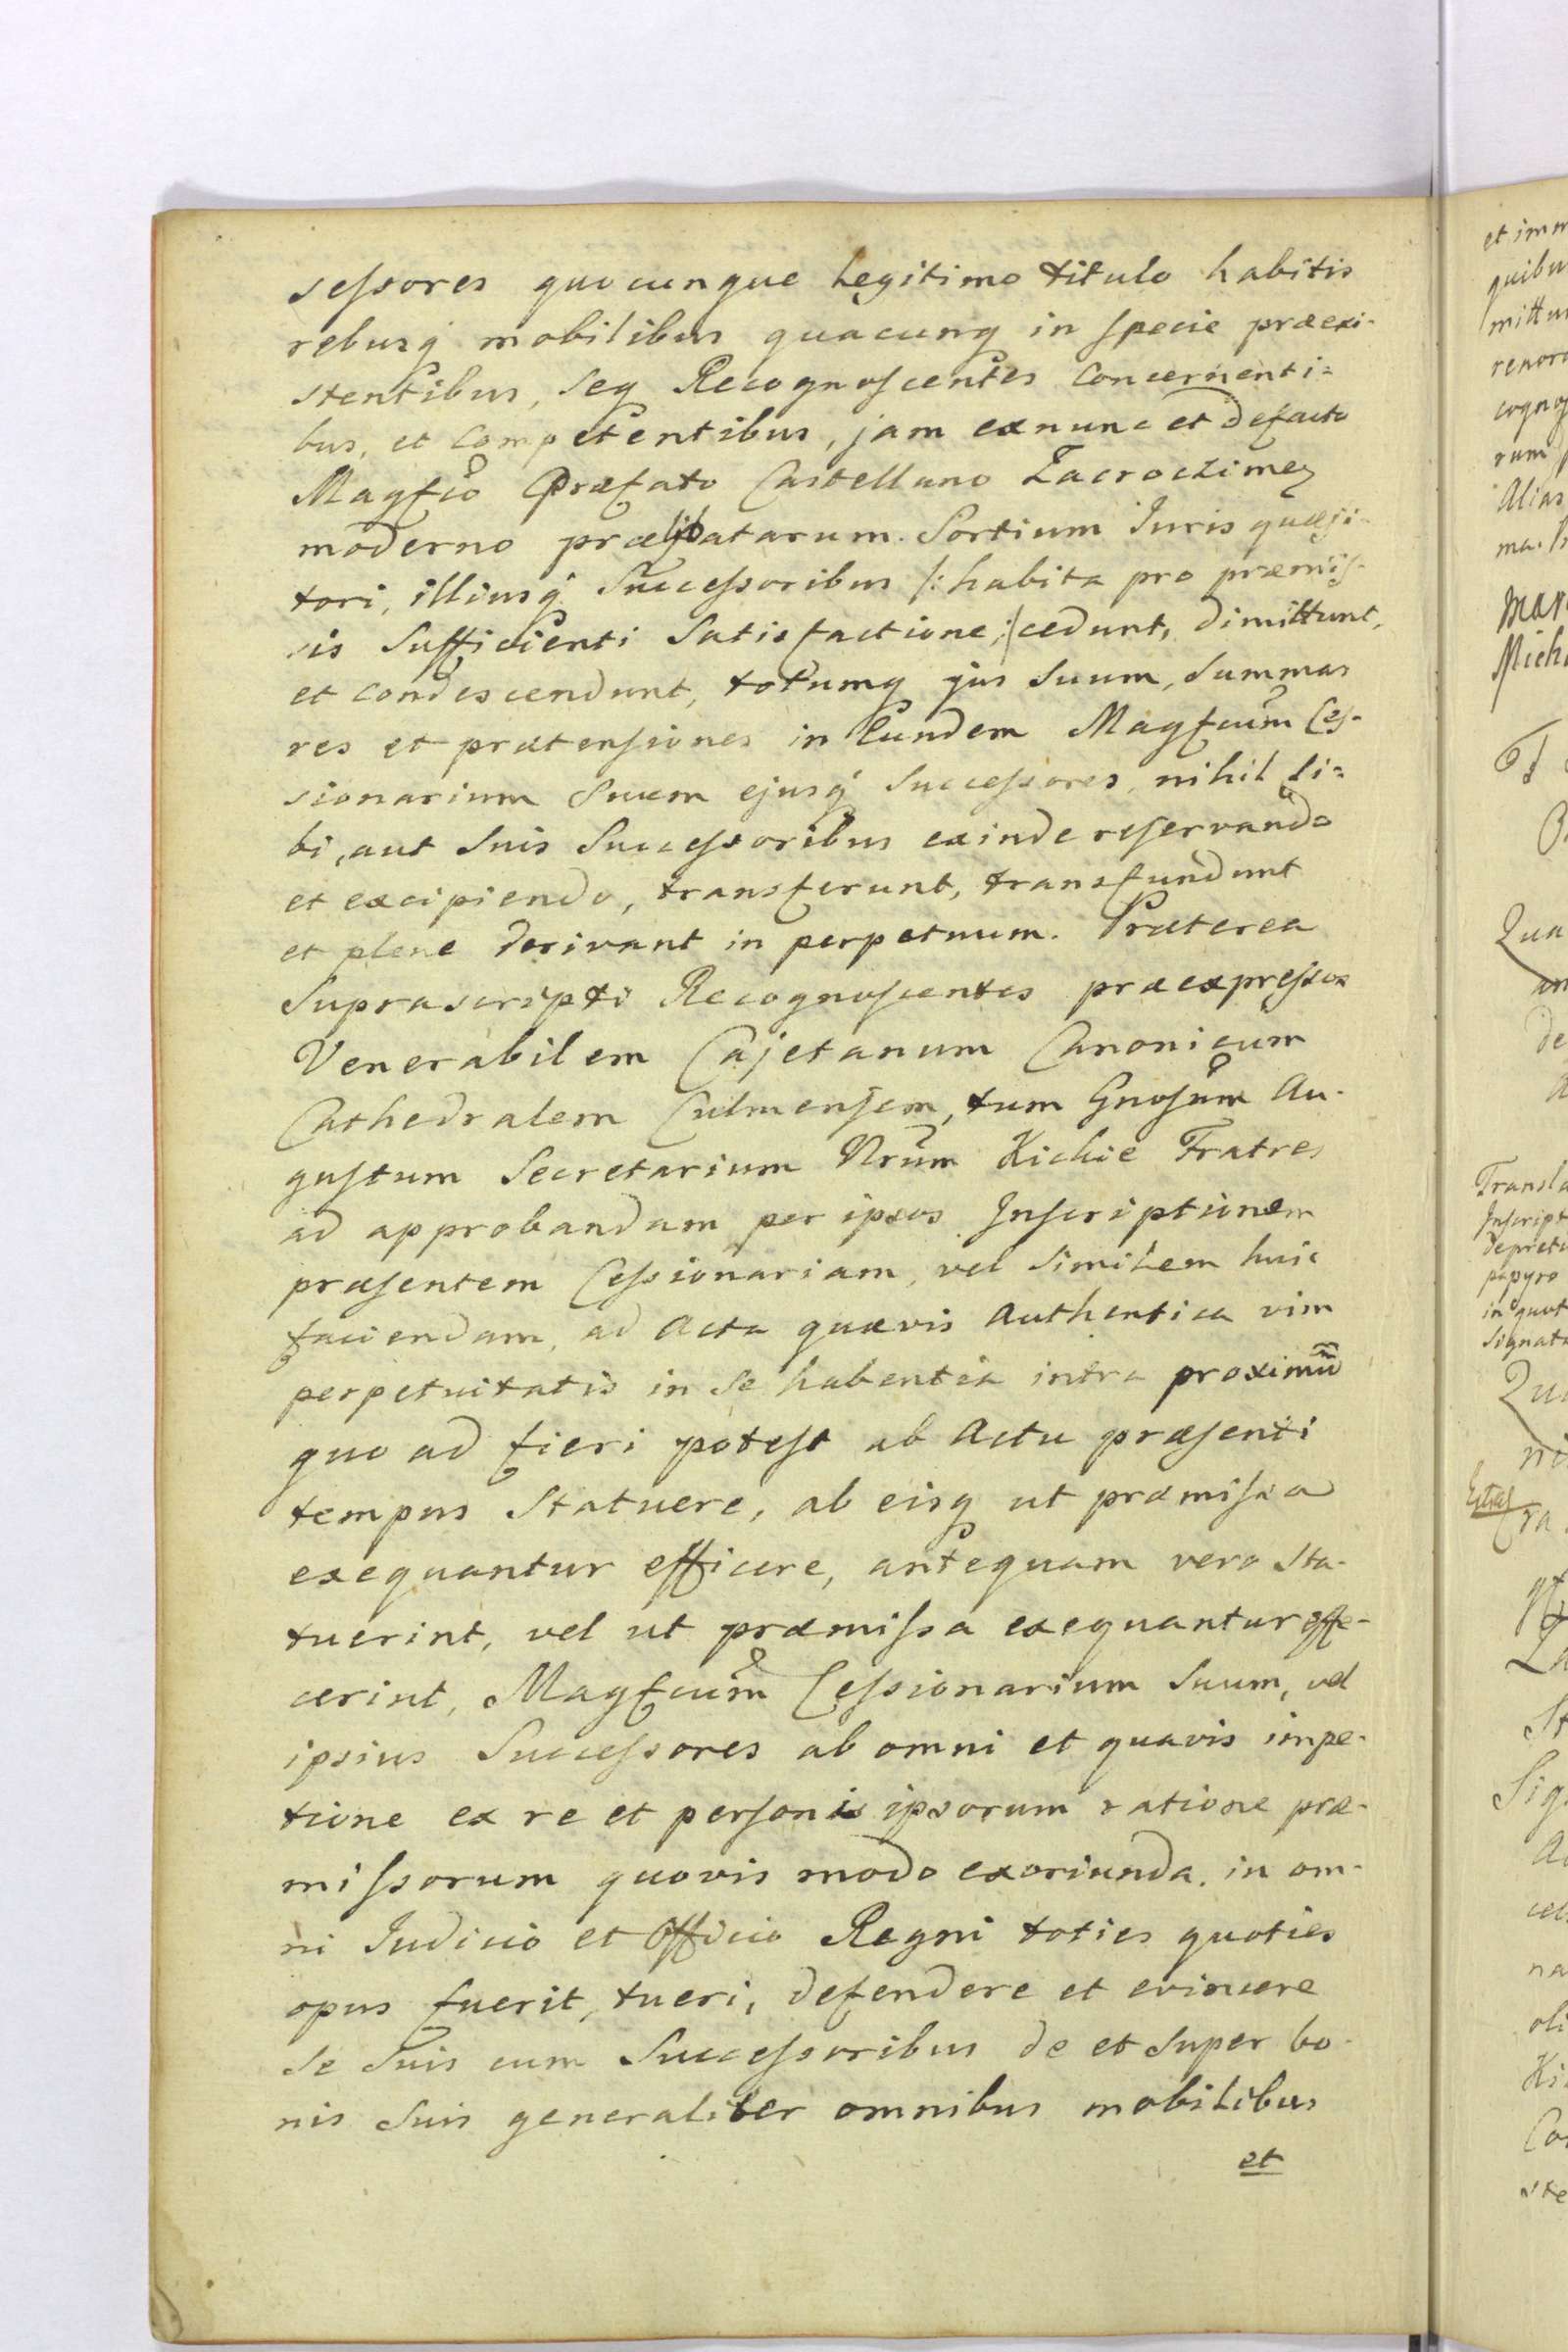 sessores quocunque legitimo titulo habitis
rebusq mobilibus quacunq in specie præexi-
stentibus, seq Recognoscentes concernenti=
bus, et competentibus, jam exnunc et defacto
Magfco Præfato Castellano Zacroczimen
moderno prælibatarum Sortium Iuris quæsi-
tori, illiusq Successoribus /: habita pro præmis-
sis sufficienti Satisfactione :/ cedunt, dimittunt,
et condescendunt, totumq jus Suum, Summas
res et prætensiones in Eundem Magfcum Ces-
sionarium Suum ejusq Successores, nihil si=
bi, aut Suis Successoribus exinde reservando
et excipiendo, transferunt, transfundunt
et plene derivant in perpetuum. Præterea
Suprascripti Recognoscentes præexpressos
Venerabilem Cajetanum Canonicum
Cathedralem Culmensem, tum Gnosum Au-
gustum Secretarium Nrum Kickie Fratres
ad approbandam per ipsos Inscriptionem
præsentem Cessionariam, vel Similem huic
faciendam, ad Acta quævis Authentica vim
perpetuitatis in Se habentia intra proximũ
quo ad fieri potest ab Actu præsenti
tempus Statuere, ab eisq ut præmissa
exequantur efficere, antequam vero Sta-
tuerint, vel ut præmissa exequantur effe-
cerint, Magfcum Cessionarium Suum, vel
ipsius Successores ab omni et quavis impe-
tione ex re et personis ipsorum ratione præ-
missorum quovis modo exoriunda, in om-
ni Iudicio et Officio Regni toties quoties
opus fuerit, tueri, defendere et evincere
Se Suis cum Successoribus de et Super bo-
nis Suis generaliter omnibus mobilibus
et